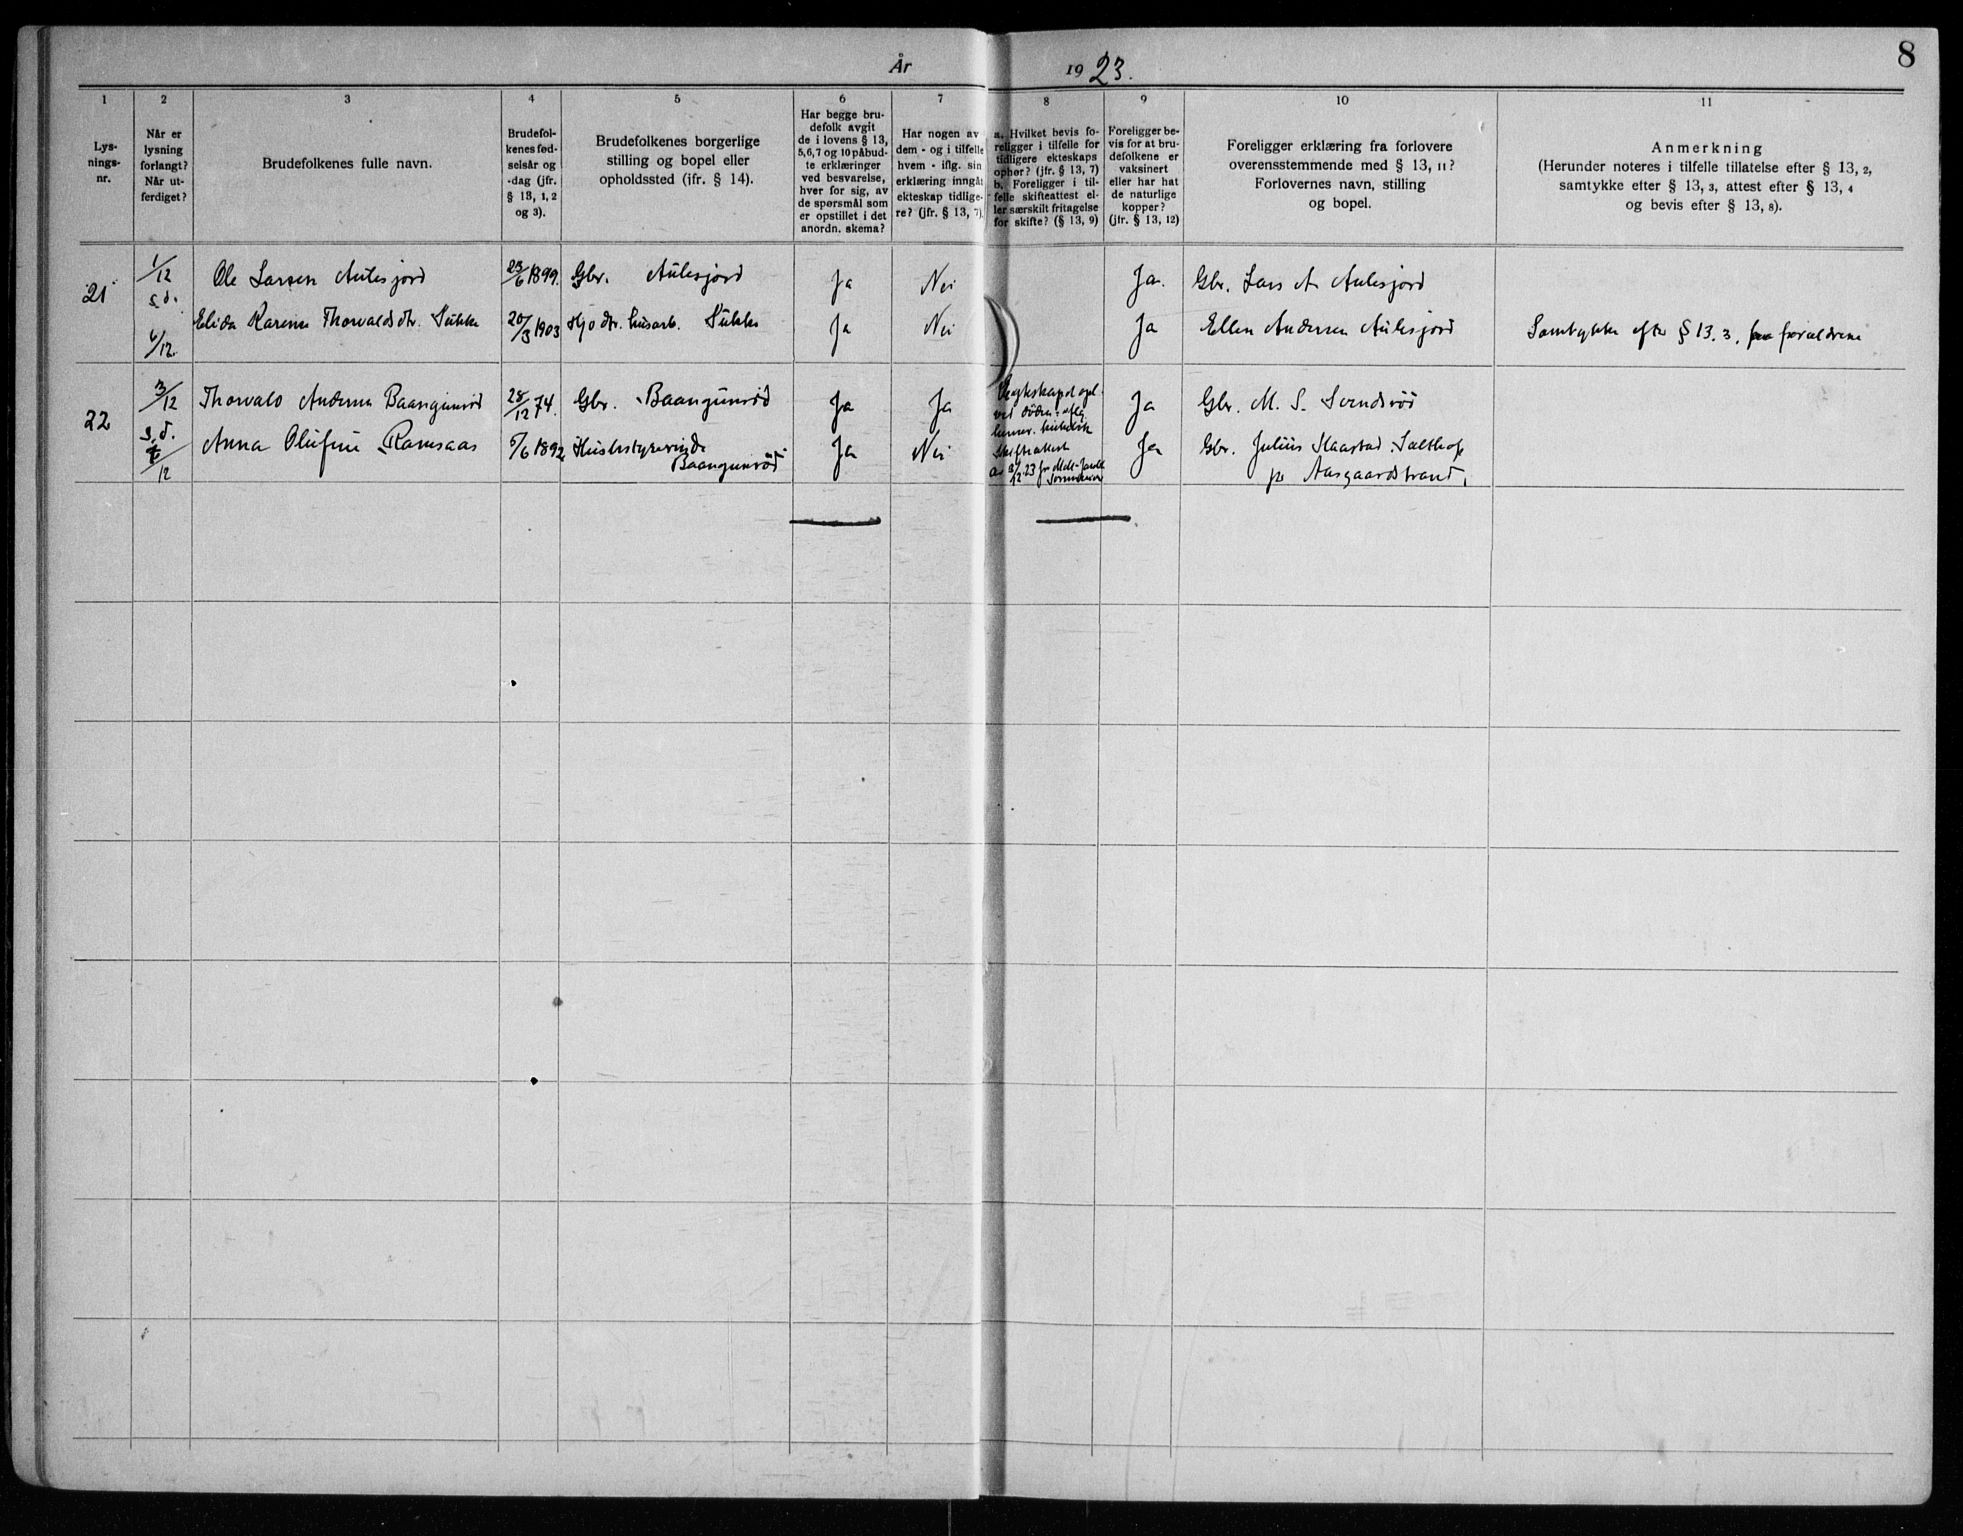 8
År 1923.
1
2
3
4
5
6
7
8
9
10
11
Lys-
nings-
nr.
Når er
lysning
forlangt?
Når ut-
ferdiget?
Brudefolkenes fulle navn.
Brudefol-
kenes fød-
selsår og
-dag (jfr.
§ 13, 1, 2
og 3).
Brudefolkenes borgerlige
stilling og bopel eller
opholdssted (ifr. § 14).
Har begge bru-
defolk avgit
de i lovens § 13,
5,6,7 og 10 påbud-
te erklæringer
ved besvarelse,
hver for sig, av
de spørsmål som
er opstillet i det
anordn. skema?
Har nogen av
dem - og i tilfelle
hvem - iflg. sin
erklæring inngåt
ekteskap tidlige-
re? (jfr. § 13, 7).
a. Hvilket bevis fo-
religger i tilfelle for
tidligere ekteskaps
ophør? (jfr. § 13, 7)
b. Foreligger i til-
felle skifteattest el-
ler særskilt fritagelse
for skifte? (§ 13, 9)
Foreligger be-
vis for at bru-
defolkene er
vaksinert
eller har hat
de naturlige
kopper?
(jfr. § 13, 12)
Foreligger erklæring fra forlovere
overensstemmende med § 13, 11?
Forlovernes navn, stilling
og bopel.
Anmerkning
(Herunder noteres i tilfelle tillatelse efter § 13, 2,
samtykke efter § 13, 3, attest efter § 13, 4
og bevis efter § 13, 8).
21
1/12
s.d.
6/12.
Ole Larsen Aulesjord
23/6 1899.
Gbr. Aulesjord
Ja
Nei
Ja.
Gbr. Lars A. Aulesjord
Elida Karine Thorvaldsdtr. Sukke
20/3 1903
Hjo dtr. husarb. Sukke
Ja
Nei
Ja
Ellen Andersen Aulesjord
Samtykke efter § 13.3. fra forældrene
22
3/12
s.d.
/12
Thorvald Andersen Baangunrød
28/12 74.
Gbr. Baangunrød
Ja
Ja
Ekteskapet opl.
ved døden
Ja
Gbr. M. S. Svendsrød
Anna Olufine Ramsaas
5/6 1892
Husbestyrerinde
Baangunrød
Ja
Nei
Skifteattest
av 3/12 23
Ja
Gbr. Julius Haastad Salthop
pr Aasgaardstrand.